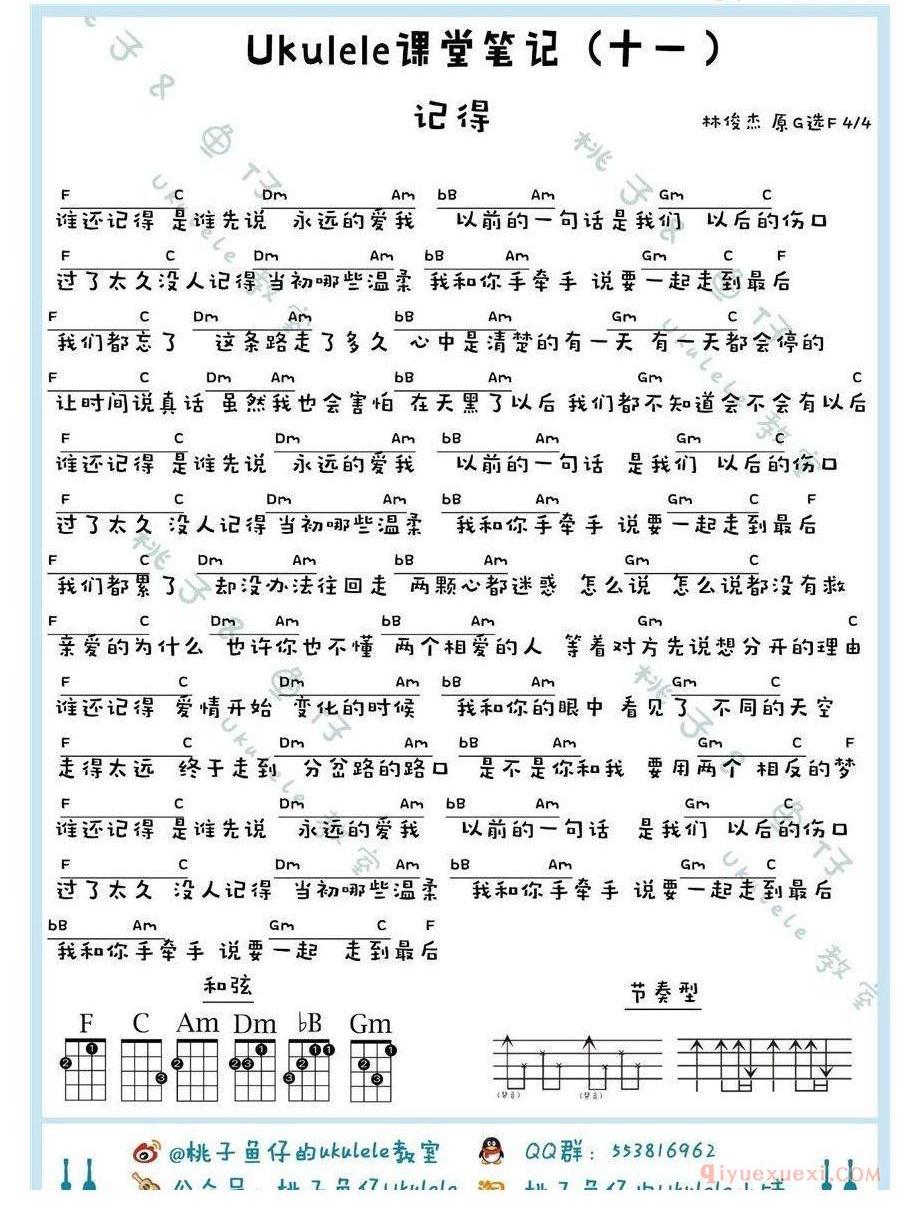 Ukulele课堂笔记（十一）
记得
林俊杰 原G选F 4/4
F C Dm Am bB Am Gm C
谁还记得 是谁先说 永远的爱我 以前的一句话是我们 以后的伤口
F C Dm Am bB Am Gm C F
过了太久没人记得当初哪些温柔 我和你手牵手 说要一起走到最后
F C Dm Am bB Am Gm C
我们都忘了 这条路走了多久 心中是清楚的有一天 有一天都会停的
F C Dm Am bB Am Gm C
让时间说真话 虽然我也会害怕 在天黑了以后 我们都不知道会不会有以后
F C Dm Am bB Am Gm C
谁还记得 是谁先说 永远的爱我 以前的一句话 是我们 以后的伤口
F C Dm Am bB Am Gm C F
过了太久 没人记得 当初哪些温柔 我和你手牵手 说要一起走到最后
F C Dm Am bB Am Gm C
我们都累了 却没办法往回走 两颗心都迷惑 怎么说 怎么说都没有救
F C Dm Am bB Am Gm C
亲爱的为什么 也许你也不懂 两个相爱的人 等着对方先说想分开的理由
F C Dm Am bB Am Gm C
谁还记得 爱情开始 变化的时候 我和你的眼中 看见了 不同的天空
F C Dm Am bB Am Gm C F
走得太远 终于走到 分岔路的路口 是不是你和我 要用两个 相反的梦
F C Dm Am bB Am Gm C
谁还记得 是谁先说 永远的爱我 以前的一句话 是我们 以后的伤口
F C Dm Am bB Am Gm C
过了太久 没人记得 当初哪些温柔 我和你手牵手 说要一起走到最后
bB Am Gm C F
我和你手牵手 说要一起 走到最后
和弦
节奏型
F C Am Dm bB Gm
@桃子鱼仔的ukulele教室
QQ群：553816962
qiyuexuexi.com
公众号：桃子鱼仔ukulele
桃子&鱼T子
Ukulele教室